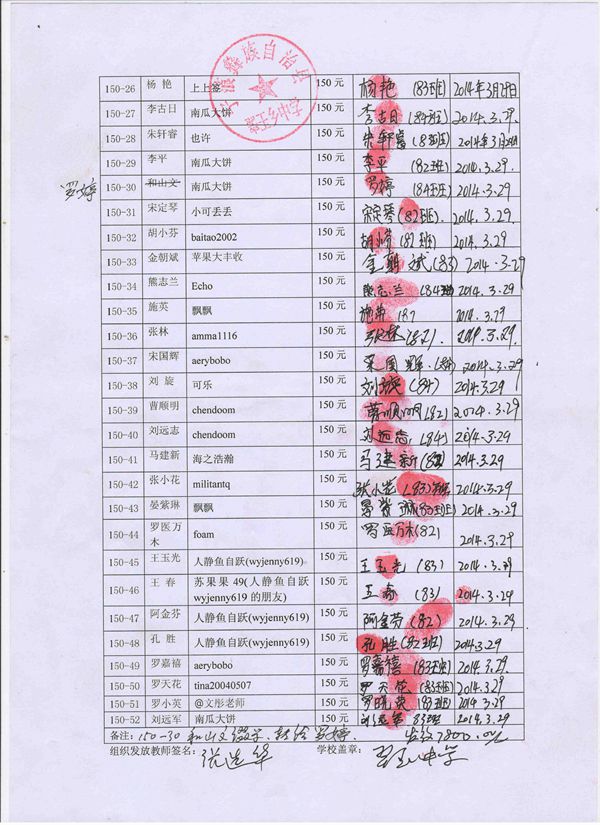 宁蒗彝族自治县
150-26 杨 艳 上上签 150 元 杨艳 (83班) 2014年3月29日
150-27 李古日 南瓜大饼 150 元 李古日 (84班) 2014.3.29
150-28 朱轩睿 也许 150 元 朱轩睿 (83班) 2014年3月29日
150-29 李平 南瓜大饼 150 元 李平 (82班) 2014.3.29
罗婷 150-30 和山文 南瓜大饼 150 元 罗婷 (84班) 2014.3.29
150-31 宋定琴 小可丢丢 150 元 宋定琴 (82班) 2014.3.29
150-32 胡小芬 baitao2002 150 元 胡小芬 (82班) 2014.3.29
150-33 金朝斌 苹果大丰收 150 元 金朝斌 (83) 2014.3.29
150-34 熊志兰 Echo 150 元 熊志兰 (84班) 2014.3.29
150-35 施英 飘飘 150 元 施英 187 2014.3.29
150-36 张林 amma1116 150 元 张林 (82) 2014.3.29
150-37 宋国辉 aerybobo 150 元 宋国辉 2014.3.29
150-38 刘 旋 可乐 150 元 刘旋 (84) 2014.3.29
150-39 曹顺明 chendoom 150 元 曹顺明 (82) 2014.3.29
150-40 刘远志 chendoom 150 元 刘远志 (84) 2014.3.29
150-41 马建新 海之浩瀚 150 元 马建新 (82) 2014.3.29
150-42 张小花 militantq 150 元 张小花 (83) 2014.3.29
150-43 晏紫琳 飘飘 150 元 晏紫琳 (83班) 2014.3.29
150-44 罗医万木 foam 150 元 罗医万木 (82) 2014.3.29
150-45 王玉光 人静鱼自跃(wyjenny619) 150 元 王玉光 (83) 2014.3.29
150-46 王 春 苏果果 49(人静鱼自跃 wyjenny619 的朋友) 150 元 王春 (83) 2014.3.29
150-47 阿金芬 人静鱼自跃(wyjenny619) 150 元 阿金芬 (82) 2014.3.29
150-48 孔 胜 人静鱼自跃(wyjenny619) 150 元 孔胜 (82班) 2014.3.29
150-49 罗嘉禧 aerybobo 150 元 罗嘉禧 (83班) 2014.3.29
150-50 罗天花 tina20040507 150 元 罗天花 (83班) 2014.3.29
150-51 罗小英 @文彤老师 150 元 罗晓英 (83班) 2014.3.29
150-52 刘远军 南瓜大饼 150 元 刘远军 83班 2014.3.29
备注: 150-30 和山文辍学、转给罗婷. 发放7800.0元
组织发放教师签名: 张选华 学校盖章: 翠玉中学